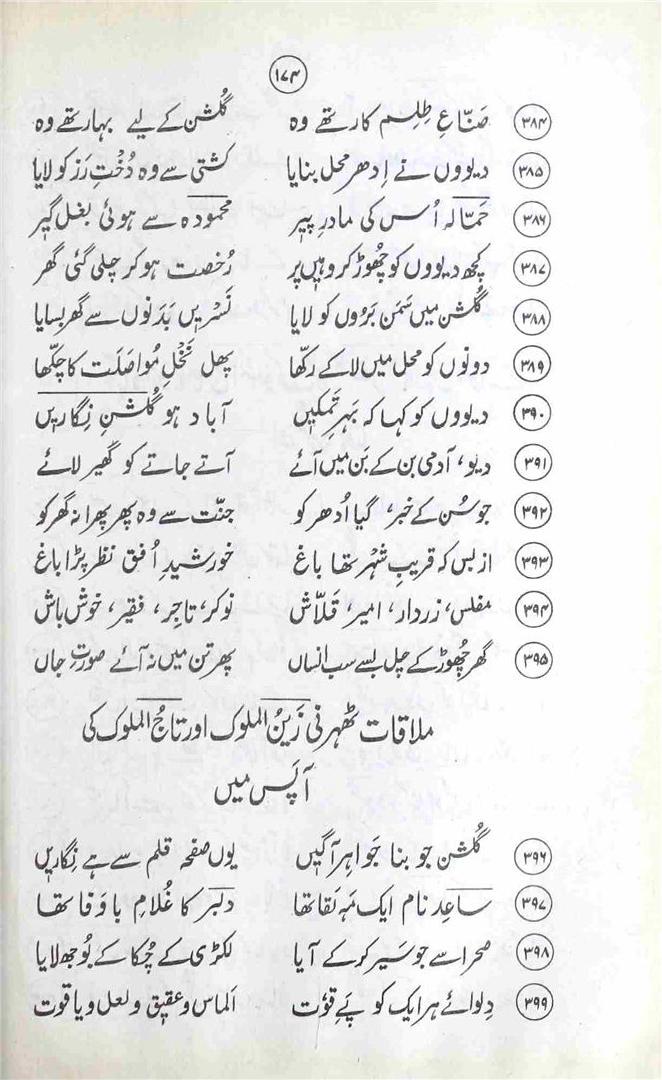 ۱۷۴
۳۸۴ صَنّاعِ طِلِسم کار تھے وہ گُلشن کے لیے بہار تھے وہ
۳۸۵ دیووں نے اِدھر محل بنایا کشتی سے وہ دُختِ رَز کو لایا
۳۸۶ حَمّالہ اُس کی مادرِ پیر محمودہ سے ہوئی بغل گیر
۳۸۷ کچھ دیووں کو چُھوڑ کر وہیں پر رُخصت ہو کر چلی گئی گھر
۳۸۸ گُلشن میں سَمَن بَروں کو لایا نَسْریں بَدَنوں سے گھر بسایا
۳۸۹ دونوں کو محل میں لا کے رکھّا پھل نَخْلِ مُواصَلَت کا چکّھا
۳۹۰ دیووں کو کہا کہ بَہرِ تَمکیں آباد ہو گُلشنِ نِگاریں
۳۹۱ دیو، آدمی بن کے بَن میں آئے آتے جاتے کو گھیر لائے
۳۹۲ جو سُن کے خبر، گیا اُدھر کو جنّت سے وہ پھر پھرا نہ گھر کو
۳۹۳ از بس کہ قریبِ شہْر تھا باغ خورشیدِ اُفق نظر پڑا باغ
۳۹۴ مفلس، زردار، امیر، قَلّاش نوکر، تاجِر، فقیر، خوش باش
۳۹۵ گھر چُھوڑ کے چل بسے سب انساں پھر تن میں نہ آئے صورتِ جاں
ملاقات ٹھہرنی زَینُ الملوک اور تاجُ الملوک کی
آپس میں
۳۹۶ گُلشن جو بنا جَواہر آگیں یوں صفحہ قلم سے ہے نِگاریں
۳۹۷ ساعِد نام ایک مَہ لقا تھا دلبر کا غُلامِ با وَفا تھا
۳۹۸ صحرا سے جو سَیر کر کے آیا لکڑی کے چُکا کے بُوجھ لایا
۳۹۹ دِلوائے ہر ایک کو پَےِ قُوْت اَلماس و عقیق و لعل و یاقوت